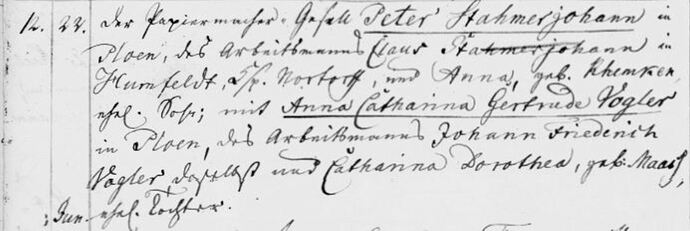 12. 22. der Papiermacher-Gesell Peter Stahmerjohann in
Ploen, des Arbeitsmanns Claus Stahmerjohann in
Humfeldt, Ksp. Nortorff, und Anna, geb. Rhemken
ehel. Sohn; mit Anna Catharina Gertrude Vogler
in Ploen, des Arbeitsmanns Johann Friederich
Vogler daselbst und Catharina Dorothea, geb. Maass,
Jun. ehel. Tochter.